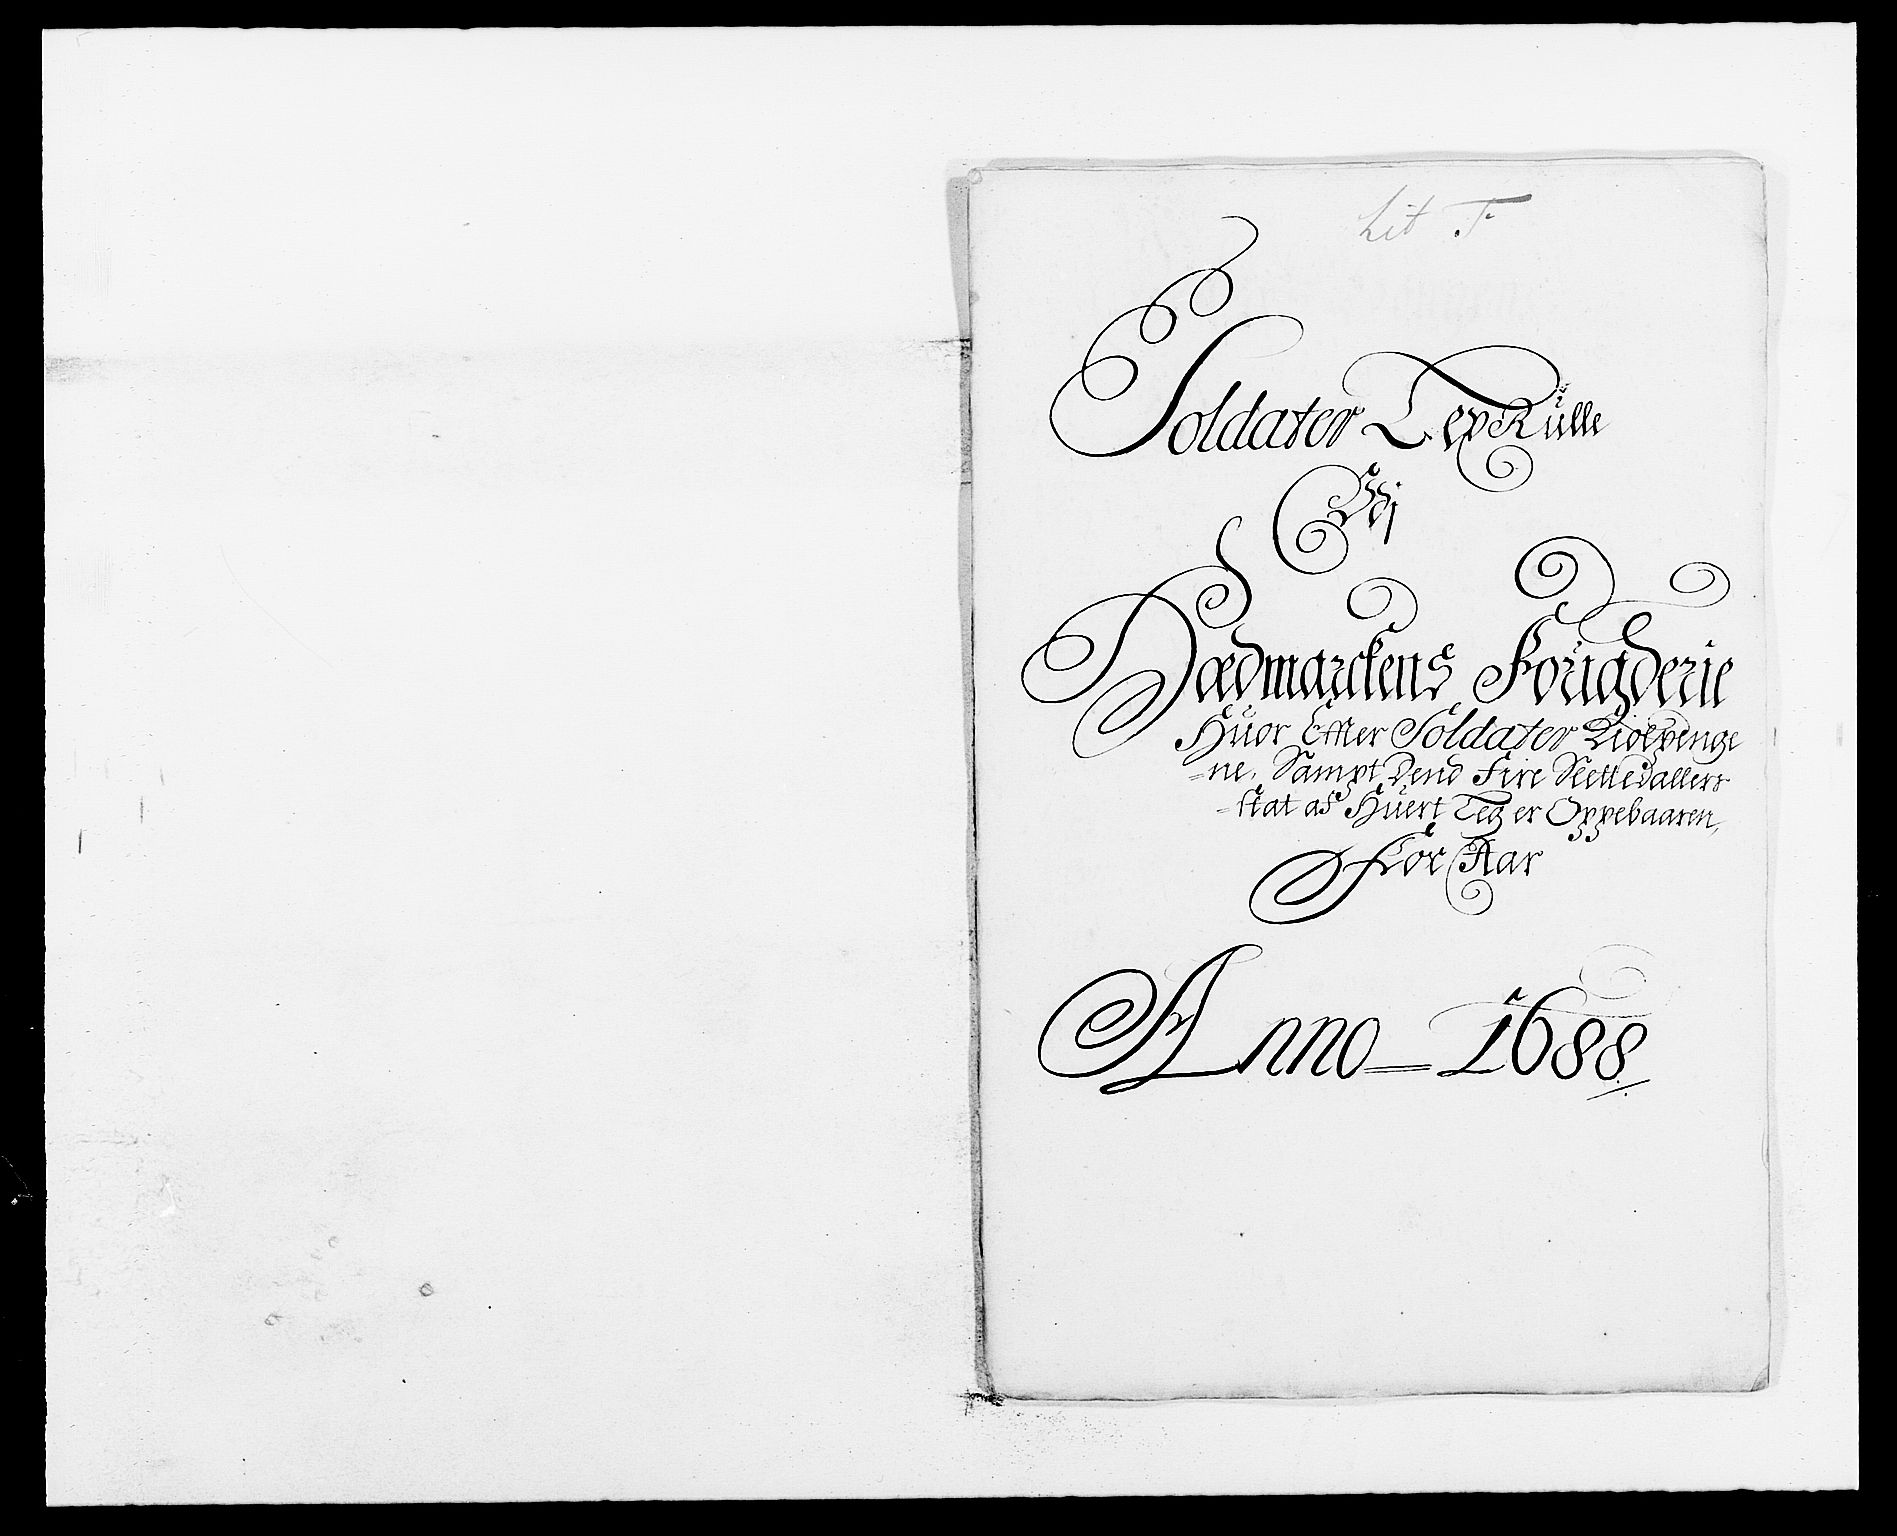 Lit F
Soldater LegRülle
Vdj
Hedmarckens Fougderie
Huor Effter Soldater Kiolpenge
=ne, Sampt Dend Fire Slettedallers
=skat af Huert Leg er Oppebaaren,
For Aar
Anno 1688